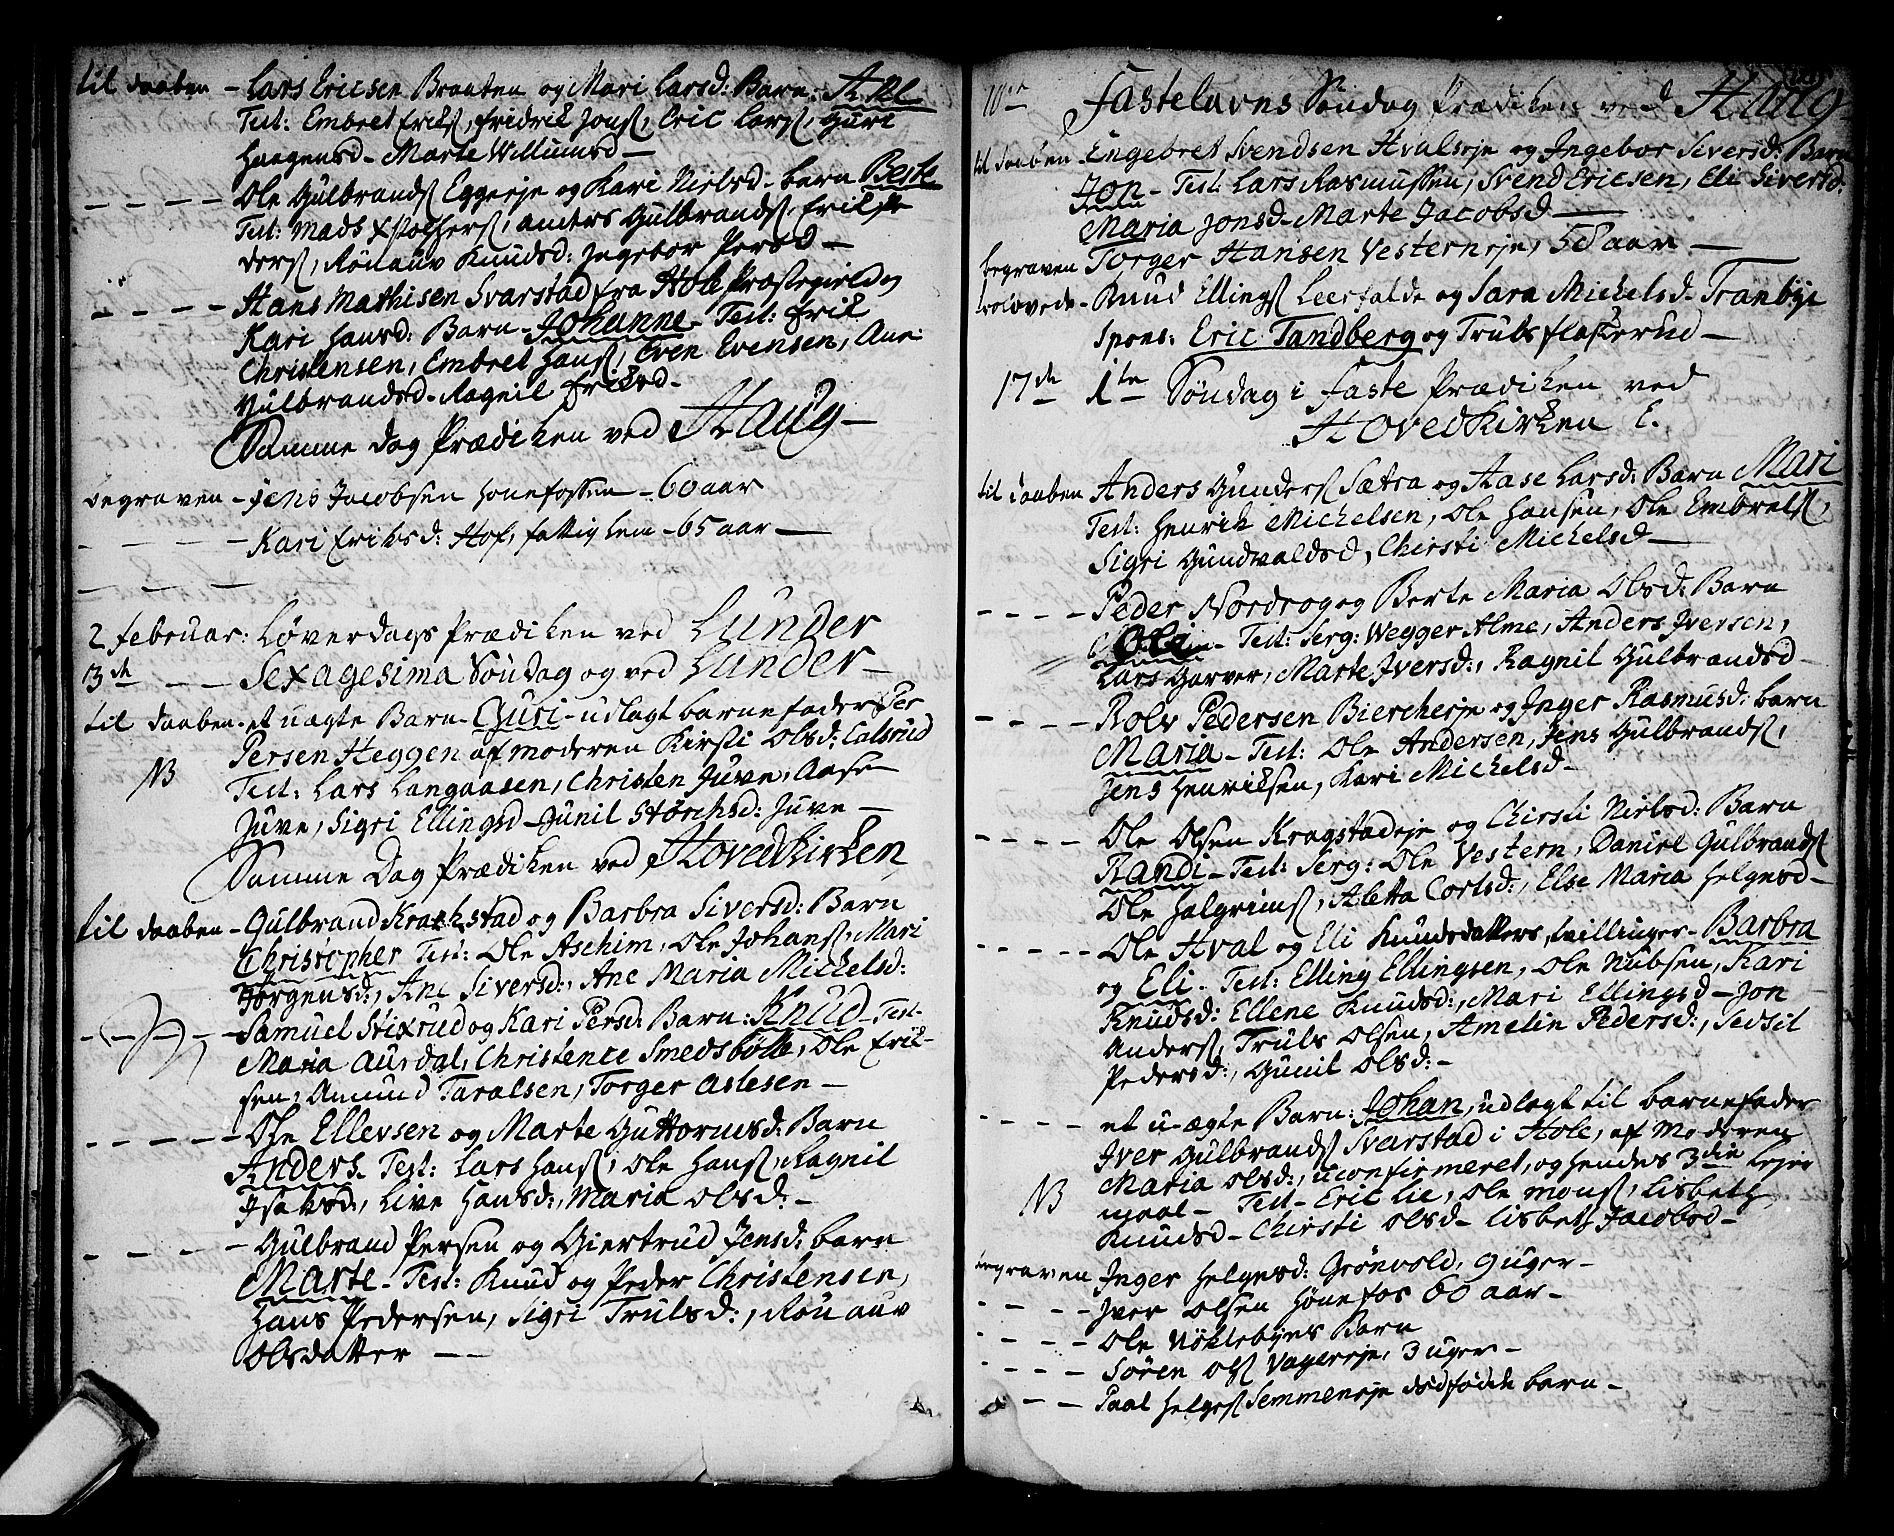 til daaben - Lars Ericsen Braaten og Mari Larsd: Barn:
Test: Embret Eriks, Fridrik Jons, Eric Lars, Guri
Haagensd - Marte Willumsd -
- - - - Ole Gulbrands Eggereje og Kari Nielsd - barn Berte
Test: Mads anders Gulbrands,
ders, Rönauv Knudsd: Ingebor Persd -
- - - - Hans Mathisen Svarstad fra Hole Præstegield og
Kari Hansd: Barn - Johanne - Test: Erik
Christensen, Embret Hans, Even Evensen, Ane
Gulbrandsd - Ragnil Eriksd -
Samme dag Prædiken ved Haug -
begraven - Jens Jacobsen Honefossen - 60 aar
- - - - Kari Eriksd: Hof, fattig lem - 65 aar -
- - - -
2 Februar: Löverdags Prædiken ved Lunder
3de - - Sexagesima Söndag og ved Lunder -
til daaben - et uægte Barn - Guri - udlagt barnefader Per
Persen Heggen af moderen Kirsti Olsd:
NB Test: Lars Langaasen, Christen Juve, Aase
Juve, Sigri Ellingsd - Gunil Störchsd: Juve -
Samme Dag Prædiken ved Hovedkirken
til daaben - Gulbrand Krachstad og Barbra Siversd: Barn
Christopher Test: Ole Aschim, Ole Johans, Mari
Jörgensd:, Ane Siversd:, Ane Maria Mickelsd:
- - - - Samuel Stixrud og Kari Persd: Barn: Knud - Test.
Maria Aurdal, Christence Smedsböle, Ole Erik-
sen, Amund Taralsen, Torger Aslesen -
- - - - Ole Ellevsen og Marte Guttormsd: Barn
Anders - Test: Lars Hans, Ole Hans, Ragnil
Isaksd:, Live Hansd:, Maria Olsd: -
- - - - Gulbrand Persen og Giertrud Jensd: barn
Marte - Test: Knud og Peder Christensen,
Hans Pedersen, Sigri Trulsd:, Rönauv
Olsdatter -
10de Fastelavns Söndag Prædiken ved Haug
til daaben - Engebret Svendsen Hvalseje og Ingebor Siversd: Barn
Jon - Test: Lars Rasmussen, Svend Ericsen, Eli Siversd:
Maria Jonsd - Marte Jacobsd -
begraven Torger Hansen Vesterneje, 58 aar -
trolovede - Knud Ellings Leerfalde og Sara Mickelsd - Tranbye
Spons: Eric Tandberg og Truls Flaskerud -
17de 1te Söndag i Faste Prædiken ved
Hovedkirken E.
til daaben Anders Gunders Sætra og Aase Larsd: Barn Mari
Test: Henrik Mickelsen, Ole Hansen, Ole Embrets,
Sigri Gundvaldsd, Chirsti Mickelsd -
- - - - Peder Nordrog og Berte Maria Olsd: Barn
Ole - Test: Serg: Wegger Alme, Anders Iversen,
Lars Garver, Marte Iversd:, Ragnil Gulbrandsd -
- - - - Rolv Pedersen Biercheeje og Inger Rasmusd: barn
Maria - Test: Ole Andersen, Jens Gulbrands,
Jens Henriksen, Kari Mickelsd -
- - - - Ole Olsen Kragstadeje og Chirsti Nielsd: Barn
Randi - Test: Serg: Ole Vestern, Daniel Gulbrands
Ole Halgrims, Aletta Corlsd:, Else Maria Helgesd -
- - - - Ole Hval og Eli Knudsdatters, tvillinger - Barbra
og Eli - Test: Elling Ellingsen, Ole Nubsen, Kari
Knudsd: Ellene Knudsd:, Mari Ellingsd - Jon
Anders, Truls Olsen, Amelin Pedersd:, Sedsil
Pedersd:, Gunil Olsd: -
- - - - et u-ægte Barn: Johan, udlagt til barnefader
Iver Gulbrands Svarstad i Hole, af Moderen
Maria Olsd:, uconfirmeret, og hendes 3die Lejer
NB maal - Test - Eric Lie, Ole Mons, Lisbeth
Knudsd - Chirsti Olsd - Lisbeth Jacobsd -
begraven Inger Helgesd: Grönvold, 9 uger -
- - - - Iver Olsen Hönefos 60 aar -
- - - - Ole Nöklebyes Barn
- - - - Sören Ols Vagereje, 3 uger -
- - - - Paal Helges Semmeneje dödfödde barn -